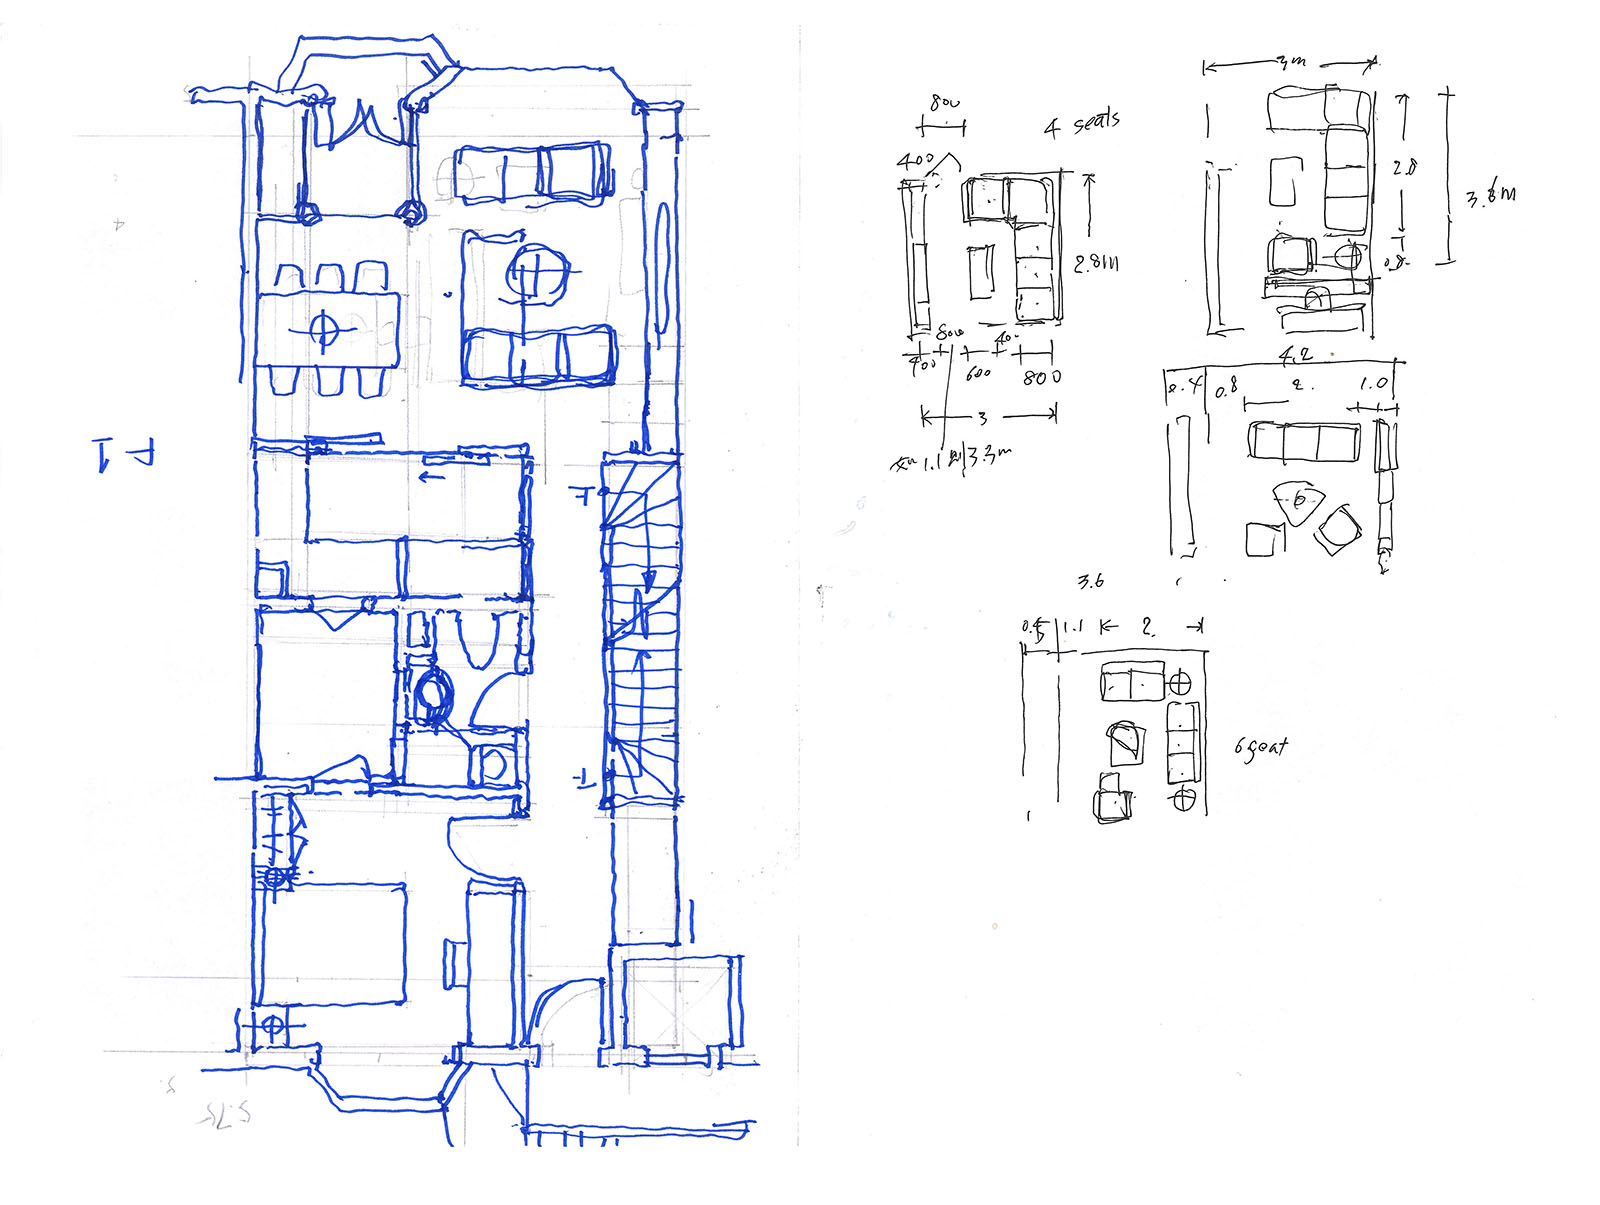 F1
800
4 seats
400
2.8m
800
400
600
40
800
3
1.1 3.3m
3m
2.8
3.6m
0.8
4.2
0.4 0.8 2. 1.0
3.6
0.5 1.1 2.
6 seat
5.75